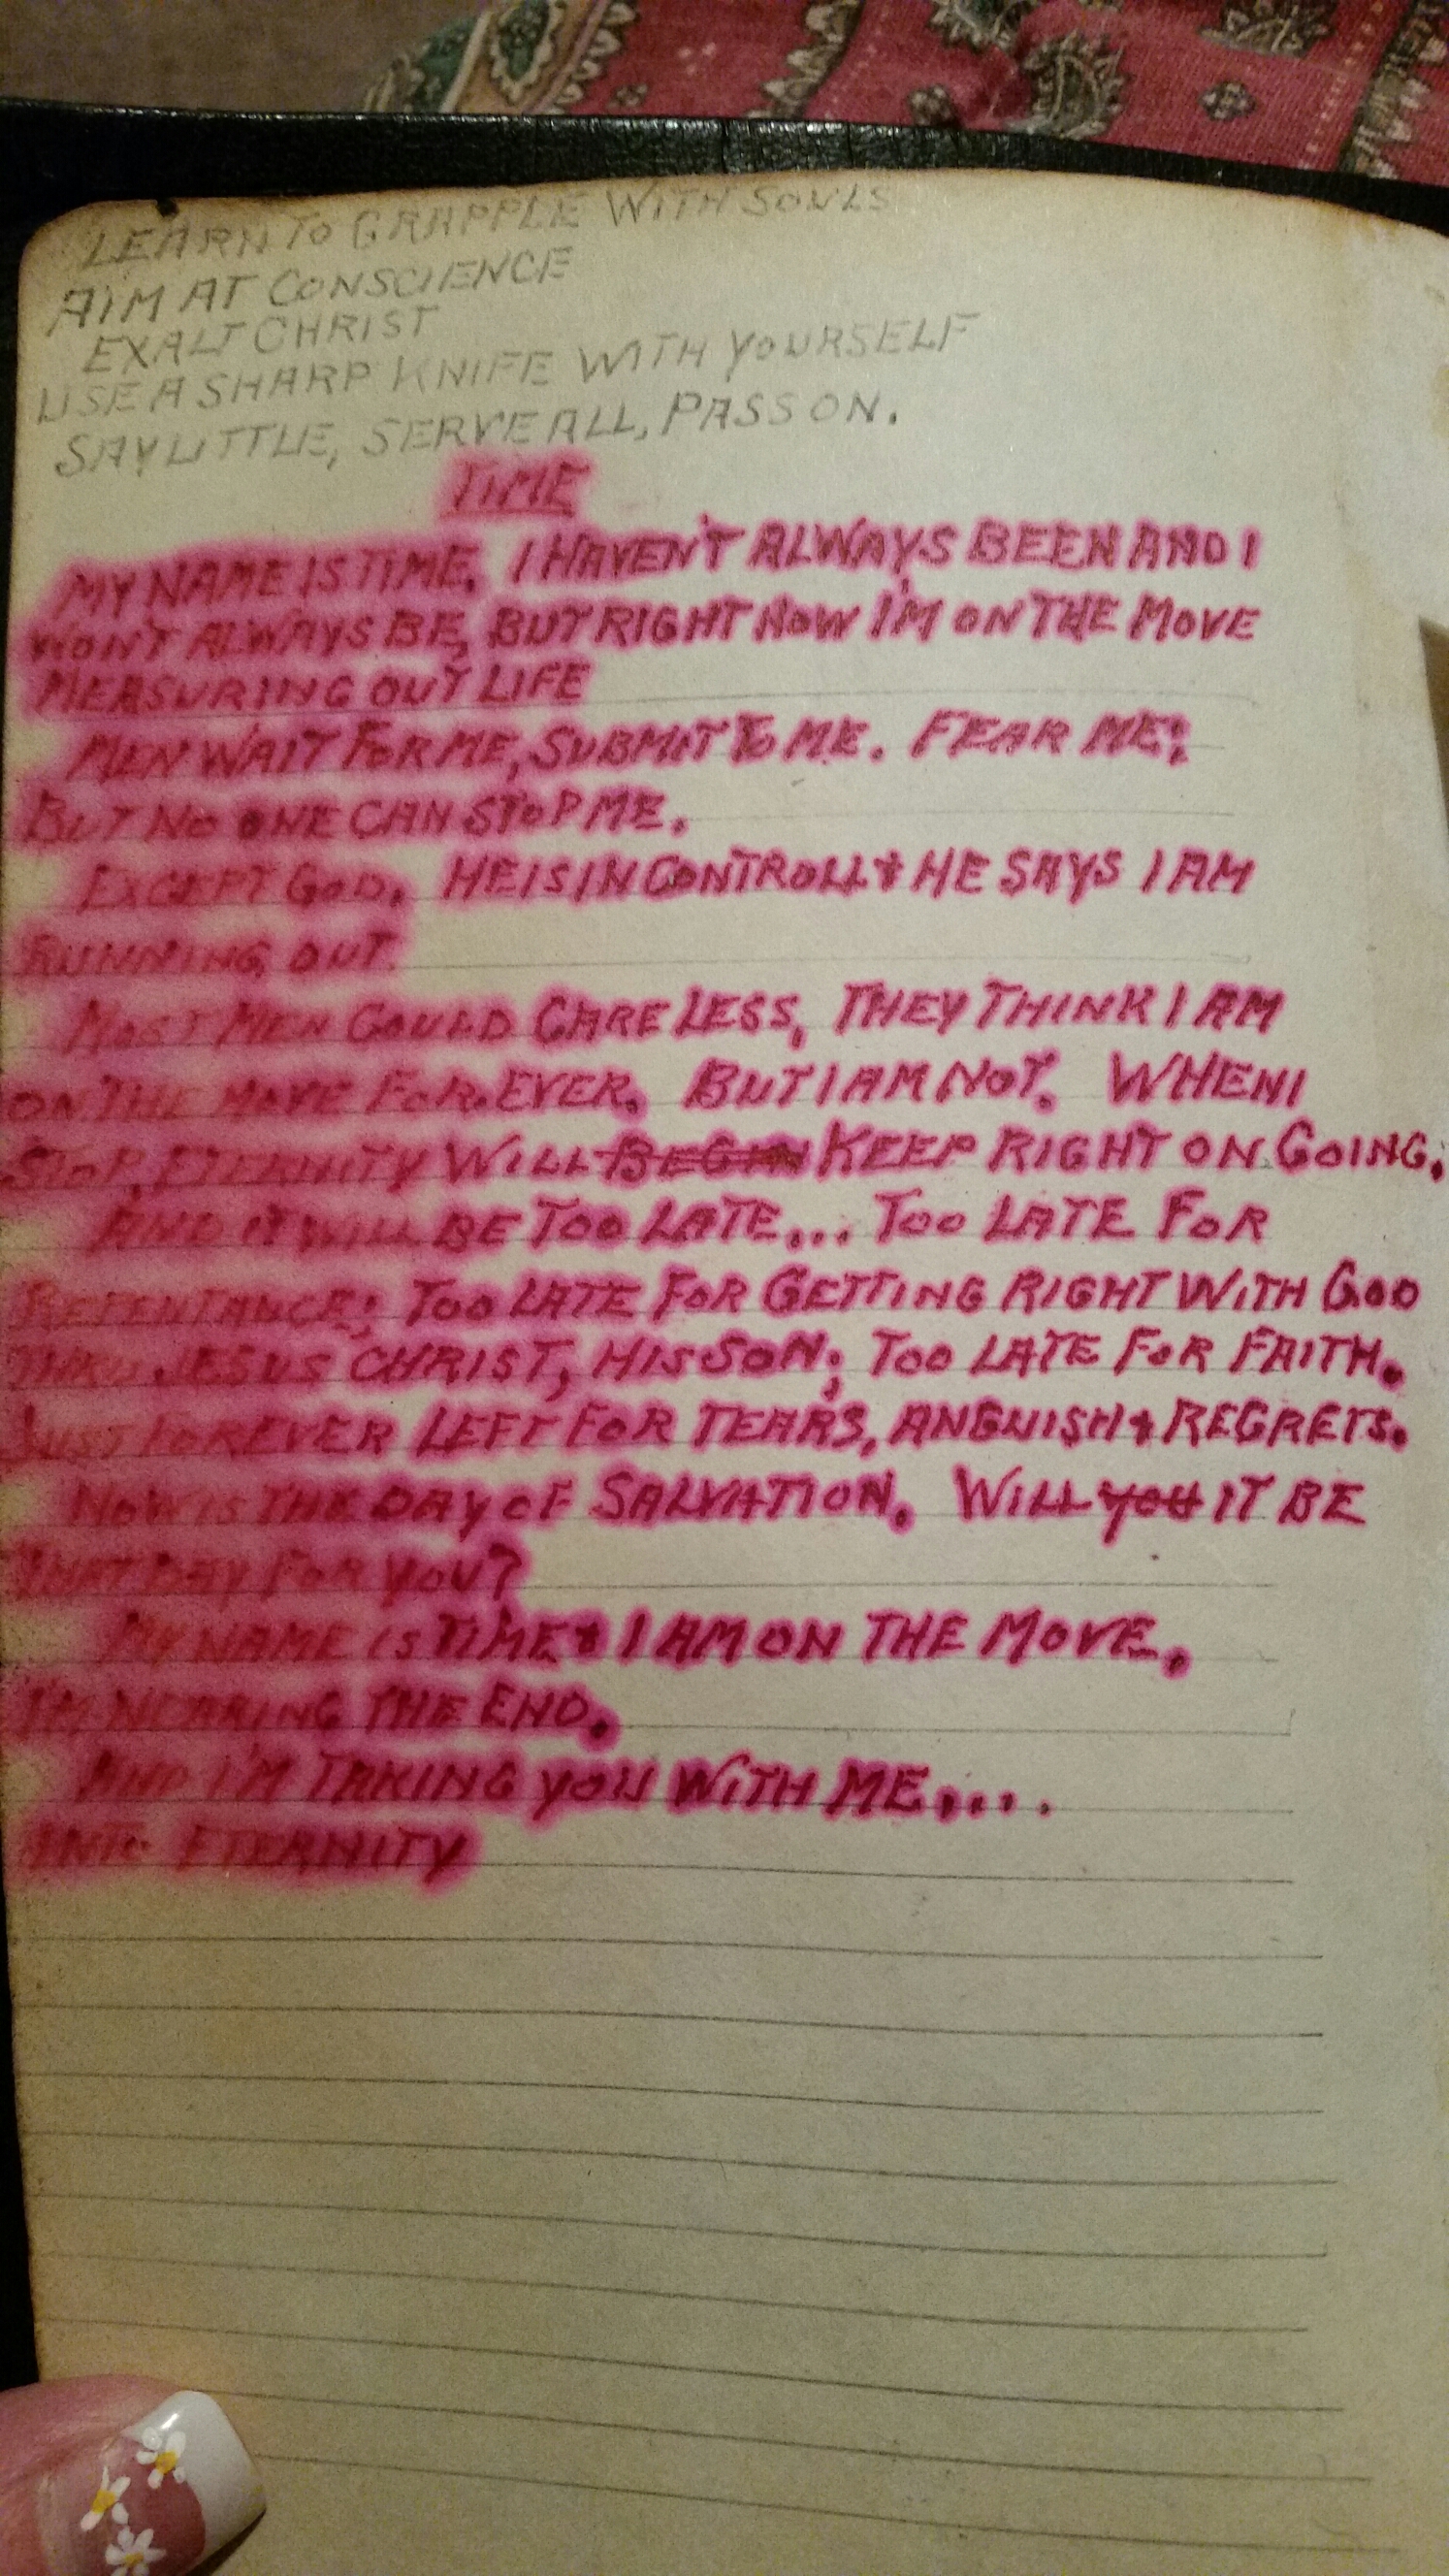 LEARN TO GRAPPLE WITH SOULS
AIM AT CONSCIENCE
EXALT CHRIST
USE A SHARP KNIFE WITH YOURSELF
SAY LITTLE, SERVE ALL, PASS ON.
TIME
MY NAME IS TIME. I HAVEN'T ALWAYS BEEN AND I
WON'T ALWAYS BE, BUT RIGHT NOW I'M ON THE MOVE
MEASURING OUT LIFE
MEN WAIT FOR ME, SUBMIT TO ME. FEAR ME;
BUT NO ONE CAN STOP ME.
EXCEPT GOD. HE IS IN CONTROLL & HE SAYS I AM
RUNNING OUT.
MOST MEN COULD CARE LESS, THEY THINK I AM
ON THE MOVE FOREVER. BUT I AM NOT. WHEN I
STOP, ETERNITY WILL BEGIN KEEP RIGHT ON GOING.
AND IT WILL BE TOO LATE... TOO LATE FOR
REPENTANCE; TOO LATE FOR GETTING RIGHT WITH GOD
THRU JESUS CHRIST, HIS SON; TOO LATE FOR FAITH.
JUST FOREVER LEFT FOR TEARS, ANGUISH & REGRETS.
NOW IS THE DAY OF SALVATION. WILL YOU IT BE
THAT DAY FOR YOU?
MY NAME IS TIME & I AM ON THE MOVE.
I'M NEARING THE END.
AND I'M TAKING YOU WITH ME....
INTO ETERNITY